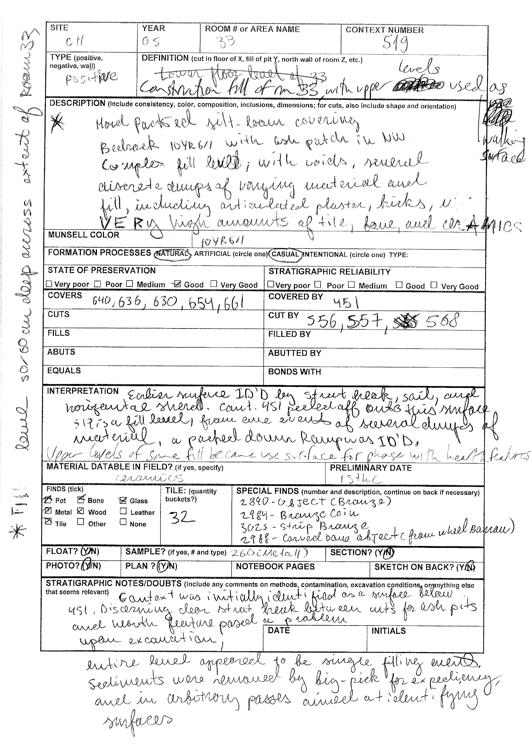 SITE YEAR ROOM # or AREA NAME CONTEXT NUMBER
CH 05 33 519
TYPE (positive, negative, wall) DEFINITION (cut in floor of X, fill of pit Y, north wall of room Z, etc.)
positive Lower floor level of 33
Construction fill of rm 33 with upper levels used as walking surface
DESCRIPTION (Include consistency, color, composition, inclusions, dimensions; for cuts, also include shape and orientation)
* Hard packed silt-loam covering
Bedrock 10YR 6/1 with ash patch in NW
Complex fill level, with voids, several
discrete dumps of varying material and
fill, including articulated plaster, bricks,
VERY high amounts of tile, bone, and cerAMICS
MUNSELL COLOR 10YR 6/1
FORMATION PROCESSES NATURAL, ARTIFICIAL (circle one) CASUAL INTENTIONAL (circle one) TYPE:
STATE OF PRESERVATION STRATIGRAPHIC RELIABILITY
Very poor Poor Medium Good Very Good Very poor Poor Medium Good Very Good
COVERS 640, 636, 630, 654, 661 COVERED BY 451
CUTS CUT BY 556, 557, 568
FILLS FILLED BY
ABUTS ABUTTED BY
EQUALS BONDS WITH
INTERPRETATION Earlier surface ID'D by strat break, soil, and
horizontal sherd. Cont. 451 peeled off onto this surface
519 is a fill level, from one event of several dumps of
material, a packed down Ramp was ID'D.
Upper levels of same fill became use surface for phase with hearth features
MATERIAL DATABLE IN FIELD? (if yes, specify) PRELIMINARY DATE
ceramics 13th c
FINDS (tick) TILE: (quantity buckets?) SPECIAL FINDS (number and description, continue on back if necessary)
Pot Bone Glass
Metal Wood Leather
Tile Other None
32
2890 - object (Bronze)
2984 - Bronze Coin
3025 - Strip Bronze
2988 - Carved bone object (from wheel Barrow)
FLOAT? (Y/N) SAMPLE? (if yes, # and type) 260 (Metal) SECTION? (Y/N)
PHOTO? (Y/N) PLAN? (Y/N) NOTEBOOK PAGES SKETCH ON BACK? (Y/N)
STRATIGRAPHIC NOTES/DOUBTS (Include any comments on methods, contamination, excavation conditions, or anything else that seems relevant)
Context was initially identified as a surface below
451. Discerning clear strat break between cuts for ash pits
and hearth feature posed a problem
upon excavation,
DATE INITIALS
entire level appeared to be single filling event.
Sediments were removed by big-pick for expediency,
and in arbitrary passes aimed at identifying
surfaces
* Fill level 50/60 cm deep across extent of Room 33